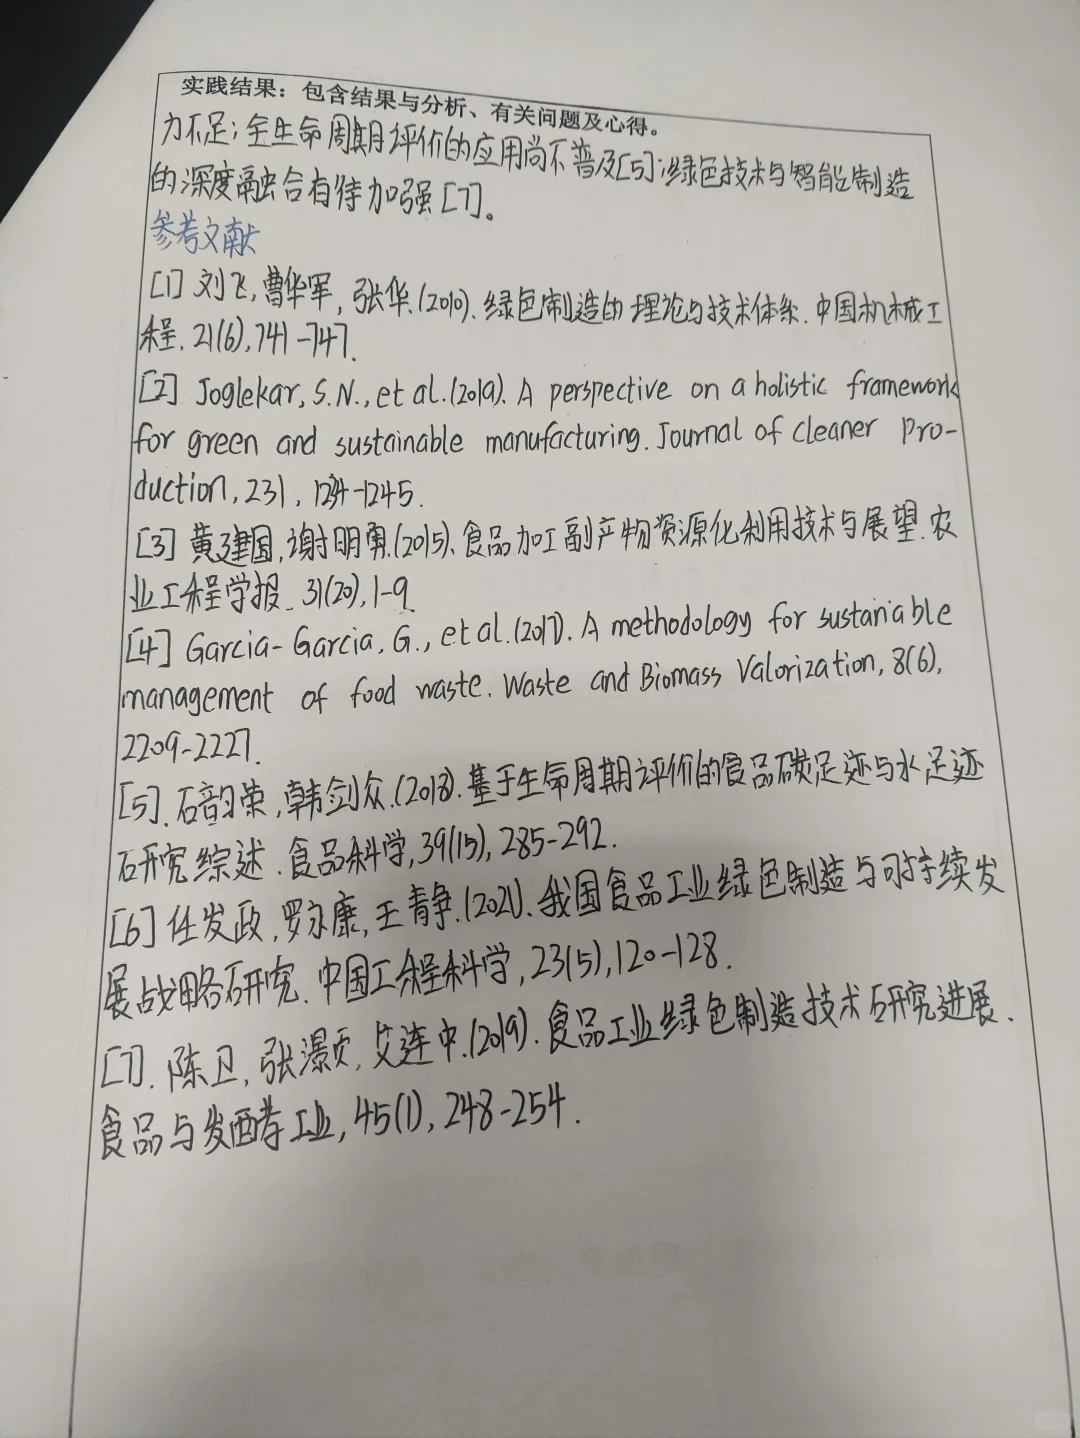 实践结果：包含结果与分析、有关问题及心得。
力不足；全生命周期评价的应用尚不普及[5]；绿色技术与智能制造
的深度融合有待加强[7]。
参考文献
[1] 刘飞, 曹华军, 张华.(2010). 绿色制造的理论与技术体系. 中国机械工
程. 21(6), 741-747.
[2] Joglekar, S.N., et al.(2019). A perspective on a holistic framework
for green and sustainable manufacturing. Journal of cleaner Pro-
duction, 231, 1234-1245.
[3] 黄建国, 谢明勇.(2015). 食品加工副产物资源化利用技术与展望. 农
业工程学报. 31(20), 1-9.
[4] Garcia-Garcia, G., et al.(2017). A methodology for sustainable
management of food waste. Waste and Biomass Valorization, 8(6),
2209-2227.
[5]. 石韵荣, 韩剑众.(2018). 基于生命周期评价的食品碳足迹与水足迹
研究综述. 食品科学, 39(15), 285-292.
[6] 任发政, 罗永康, 王静.(2021). 我国食品工业绿色制造与可持续发
展战略研究. 中国工程科学, 23(5), 120-128.
[7]. 陈卫, 张灏, 艾连中.(2019). 食品工业绿色制造技术研究进展.
食品与发酵工业, 45(1), 248-254.